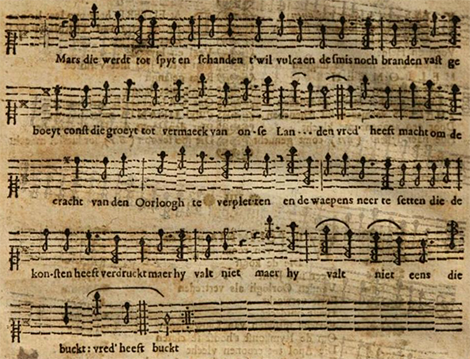 Mars die werdt tot spyt en schanden t'wil vulcaen de smis noch branden vast ge
boeyt const die groeyt tot vermaeck van on-se Lan---den vred' heeft macht om de
cracht van den Oorloogh te verpletten en de waepens neer te setten die de
kon-sten heeft verdruckt maer hy valt niet maer hy valt niet eens die
buckt: vred' heeft buckt